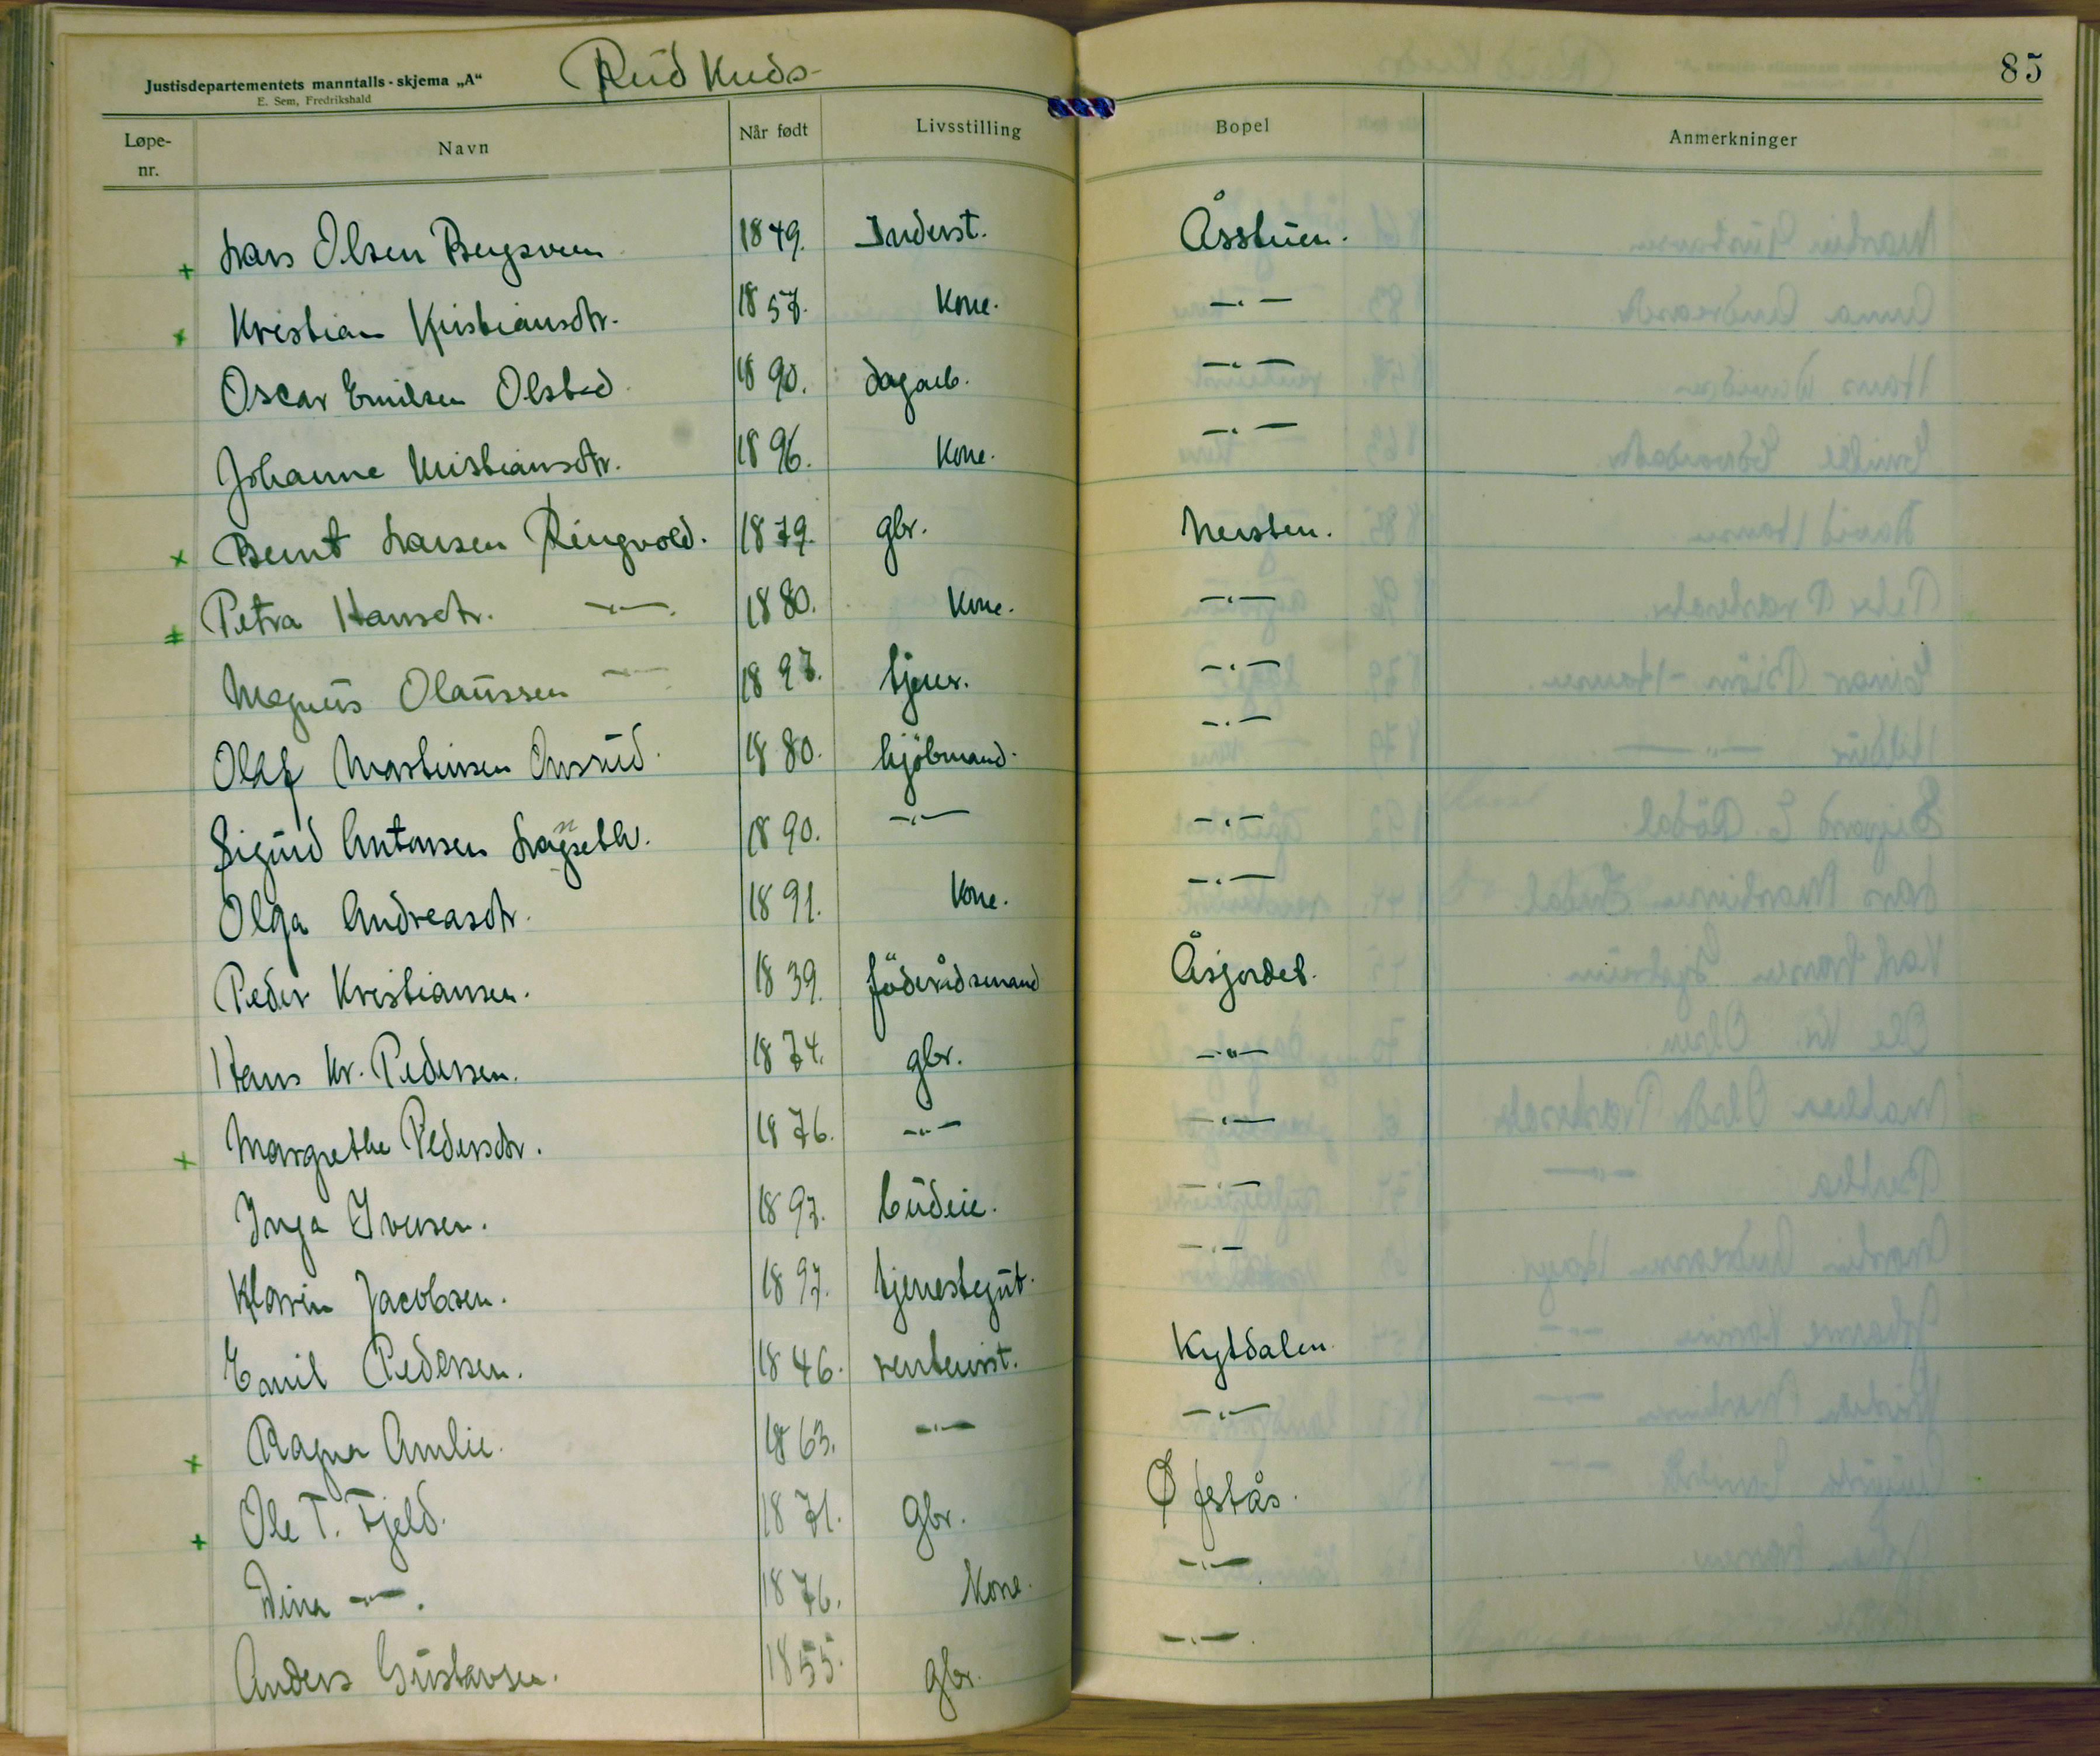 Justisdepartementets manntalls-skjema „A“ Rüd Kreds 85
E. Sem, Fredrikshald
Løpe-nr. Navn Når født Livsstilling Bopel Anmerkninger
+ Lars Olsen Bergsveen 1849. Inderst. Åsstuen.
+ Kristian Kristiansdtr. 1857. Kone. —„—
Oscar Emilsen Olstad 1890. dagarb. —„—
Johanne Kristiansdtr. 1896. Kone. —„—
+ Bernt Larsen Ringvold. 1879. gbr. Nersten.
+ Petra Hansdtr. —„— 1880. Kone. —„—
Magnus Olaussen —„— 1897. tjener. —„—
Olaf Martinsen 1880. kjöbmand. —„—
Sigurd Antonsen 1890. —„— —„—
Olga Andreasdtr. 1891. Kone. —„—
Peder Kristiansen. 1839. föderådsmand Åsjordet.
Hans Kr. Pedersen. 1874. gbr. —„—
+ Margrethe Pedersdtr. 1876. —„— —„—
Inga Iversen. 1897. büdeie. —„—
Jacobsen. 1897. tjenestegüt. —„—
Emil Pedersen. 1846. rentenist. Kytdalen.
+ Ragna Amlie. 1863. —„— —„—
+ Ole T. Fjeld. 1871. Gbr. Øfstås.
Dina —„—. 1876. Kone. —„—.
Anders Güstavsen. 1855. gbr. —„—.